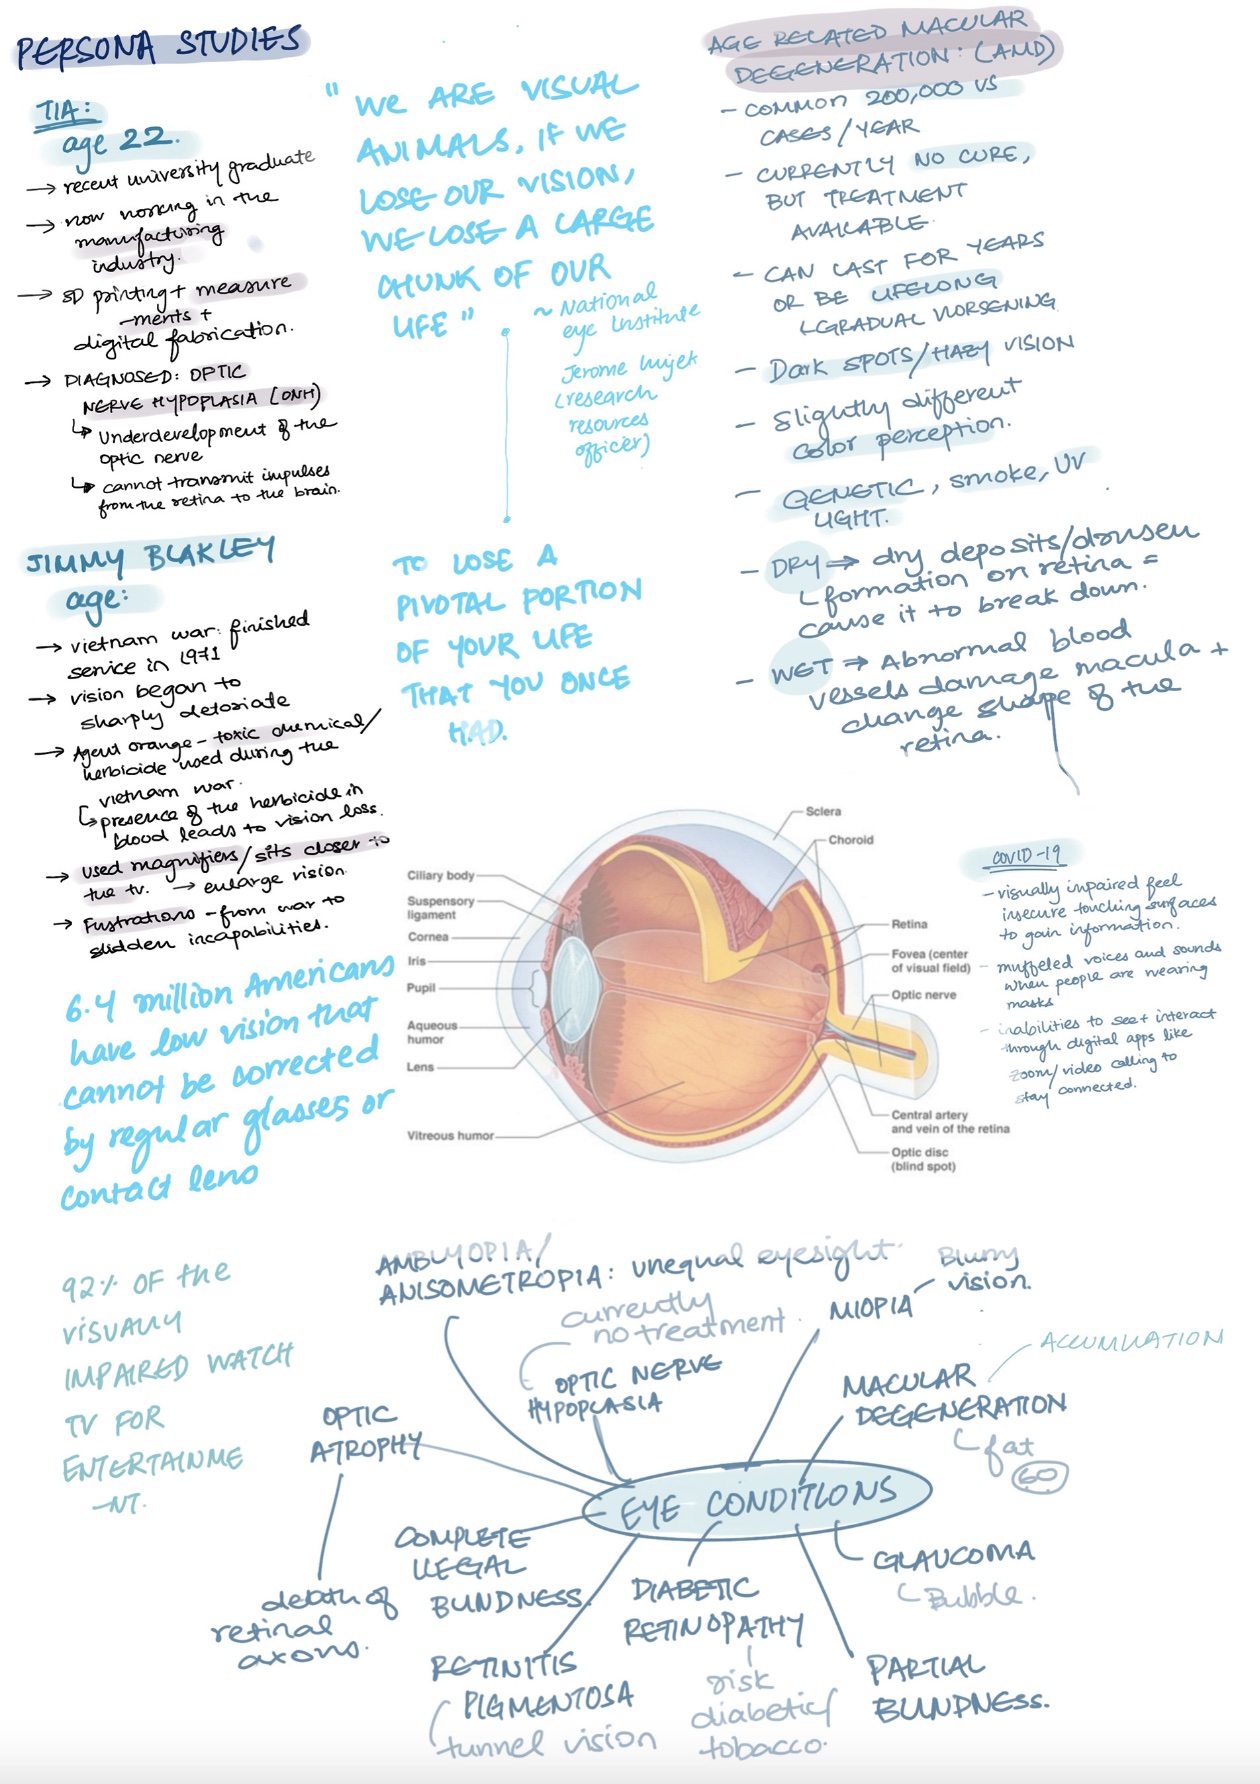 PERSONA STUDIES
TIA:
age 22.
→ recent university graduate
→ now working in the
manufacturing
industry.
→ 3D printing + measure
-ments +
digital fabrication.
→ DIAGNOSED: OPTIC
NERVE HYPOPLASIA (ONH)
↳ Underdevelopment of the
optic nerve
↳ cannot transmit impulses
from the retina to the brain.
JIMMY BLAKLEY
age:
→ vietnam war: finished
service in 1971
→ vision began to
sharply detoriate
→ Agent orange - toxic chemical/
herbicide used during the
vietnam war.
↳ presence of the herbicide in
blood leads to vision loss.
→ used magnifiers/sits closer to
the tv. → enlarge vision
→ Fustrations - from war to
sudden incapabilities.
6.4 million Americans
have low vision that
cannot be corrected
by regular glasses or
contact lens
92% OF the
VISUALLY
IMPAIRED WATCH
TV FOR
ENTERTAINME
-NT.
"WE ARE VISUAL
ANIMALS, IF WE
LOSE OUR VISION,
WE LOSE A LARGE
CHUNK OF OUR
LIFE"
~ National
eye Institute
Jerome
(research
resources
officer)
TO LOSE A
PIVOTAL PORTION
OF YOUR LIFE
THAT YOU ONCE
HAD.
AGE RELATED MACULAR
DEGENERATION: (AMD)
- COMMON 200,000 US
CASES/YEAR
- CURRENTLY NO CURE,
BUT TREATMENT
AVAILABLE.
- CAN LAST FOR YEARS
OR BE LIFELONG
↳ GRADUAL WORSENING
- Dark SPOTS/HAZY VISION
- Slightly different
color perception.
- GENETIC, smoke, UV
LIGHT.
- DRY ⇒ dry deposits/drusen
↳ formation on retina =
cause it to break down.
- WET ⇒ Abnormal blood
vessels damage macula +
change shape of the
retina.
Sclera
Choroid
Ciliary body
Suspensory
ligament
Cornea
Iris
Pupil
Aqueous
humor
Lens
Vitreous humor
Retina
Fovea (center
of visual field)
Optic nerve
Central artery
and vein of the retina
Optic disc
(blind spot)
COVID-19
- visually impaired feel
insecure touching surfaces
to gain information.
- muffeled voices and sounds
when people are wearing
masks
- inabilities to see + interact
through digital apps like
zoom/video calling to
stay connected.
AMBLYOPIA/
ANISOMETROPIA: unequal eyesight
currently
no treatment.
OPTIC NERVE
HYPOPLASIA
MIOPIA
Blurry
vision.
ACCUMULATION
MACULAR
DEGENERATION
fat
60
OPTIC
ATROPHY
EYE CONDITIONS
COMPLETE
LEGAL
BLINDNESS.
GLAUCOMA
Bubble.
death of
retinal
axons.
DIABETIC
RETINOPATHY
risk
diabetic/
tobacco.
RETINITIS
PIGMENTOSA
tunnel vision
PARTIAL
BLINDNESS.